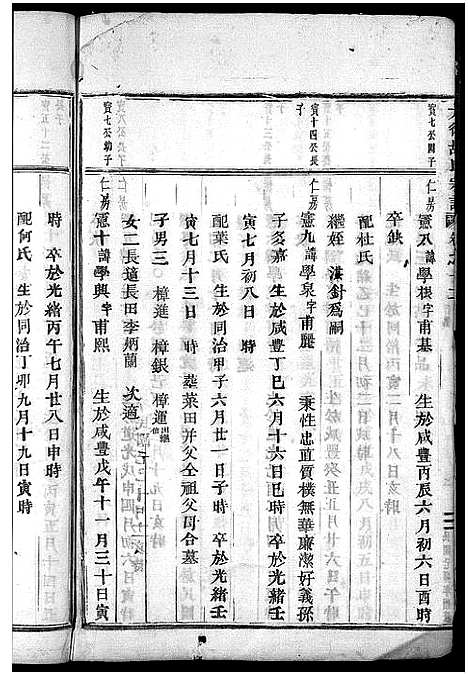 寅七公四子
仁房
憲八諱學根字甫基 生於咸豐丙辰六月初六日酉時
卒缺
配杜氏
繼姪漢針爲嗣
寅十四公長子
仁房
憲九諱學泉字甫麗 秉性忠直質樸無華廉潔好義孫
子亥嘉 生於咸豐丁巳六月十六日巳時 卒於光緒壬
寅七月初八日 時
配葉氏 生於同治甲子六月廿一日子時 卒於光緒壬
寅七月十三日 時 葬菜田井父仝祖父母合墓
子男三 樟進 樟銀 樟運出繼
女二長適長田李炳蘭 次適
寅七公幼子
仁房
憲十諱學興字甫熙 生於咸豐戊午十一月三十日寅
時 卒於光緒丙午七月廿八日申時
配何氏 生於同治丁卯九月十九日寅時